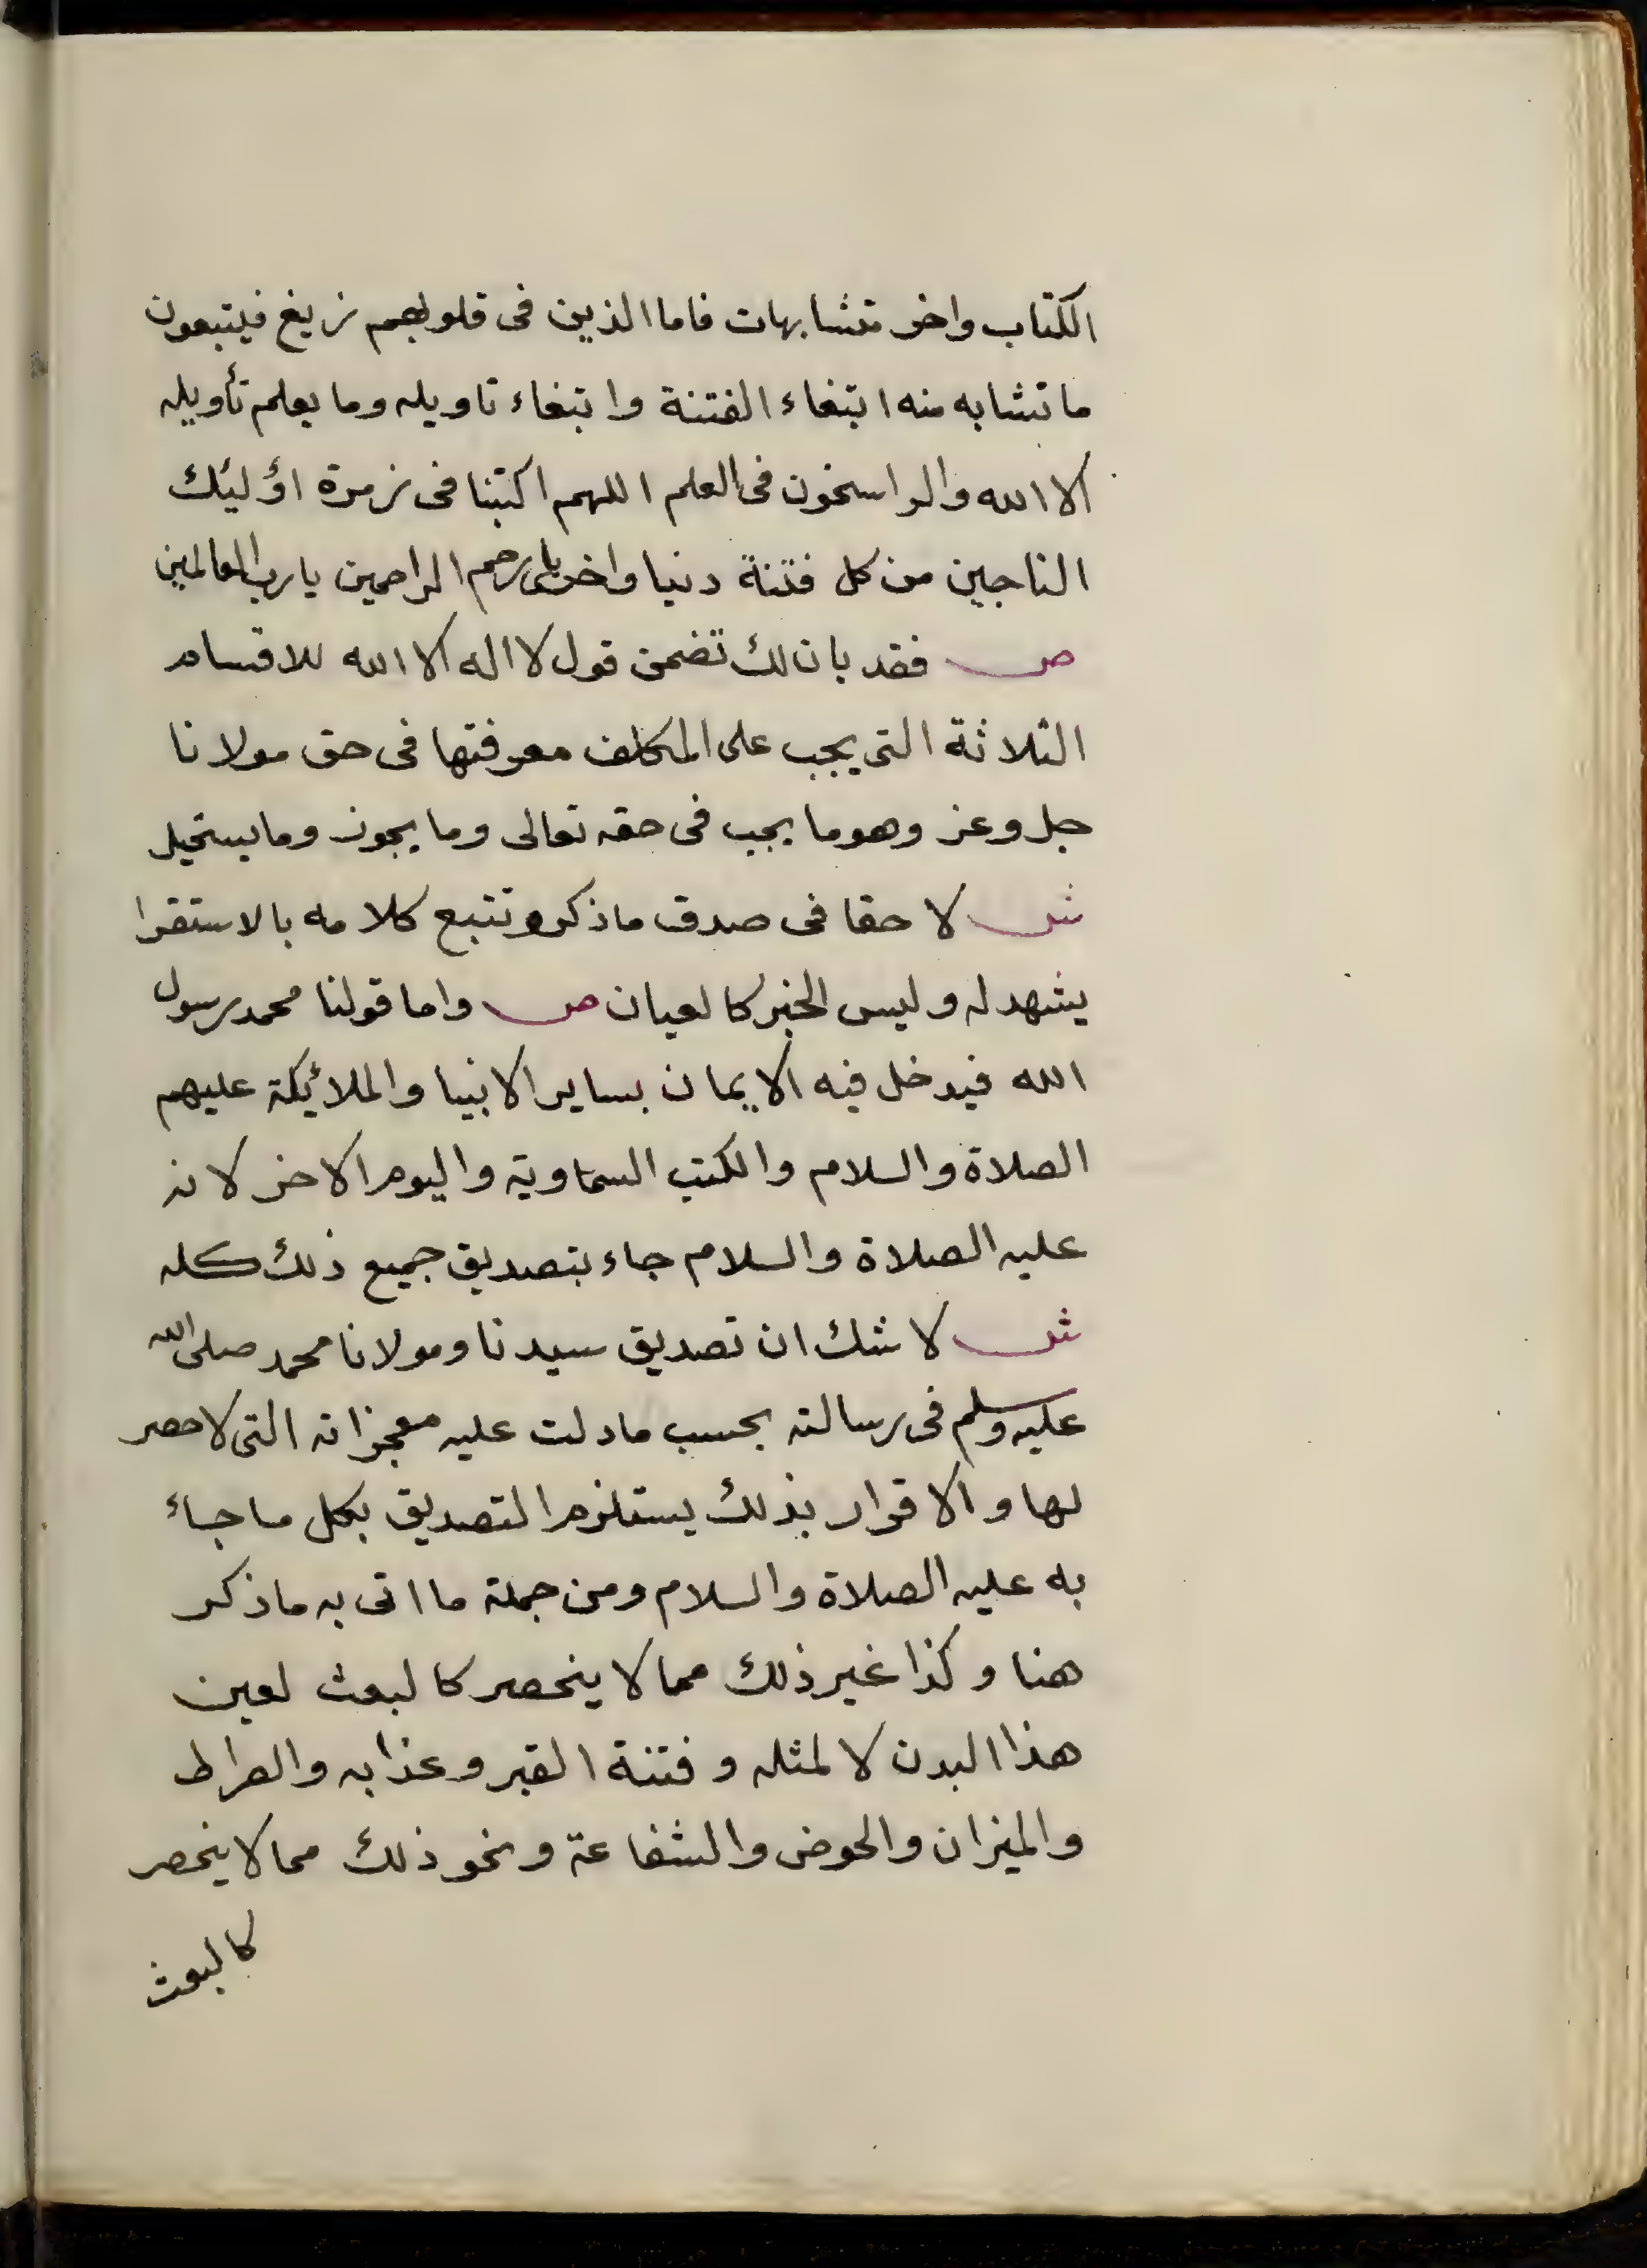 الكتاب واخر متشابهات فاما الذين فى قلوبهم زيغ فيتبعون
ما تشابه منه ابتغاء الفتنة وابتغاء تاويله وما يعلم تأويله
الا الله والراسخون فى العلم اللهم اكتبنا فى زمرة اؤليئك
الناجين من كل فتنة دنيا واخرى يا رحم الراحمين يا رب العالمين
ص فقد بان لك تضمن قول لا اله الا الله للاقسام
الثلاثة التى يجب على المكلف معرفتها فى حق مولانا
جل وعز وهو ما يجب فى حقه تعالى وما يجوز وما يستحيل
ش لا حقا فى صدق ما ذكر وتتبع كلامه بالاستقرا
يشهد له وليس الخبر كالعيان ص واما قولنا محمد رسول
الله فيدخل فيه الايمان بساير الانبيا والملائيكة عليهم
الصلاة والسلام والكتب السماوية واليوم الاخر لانه
عليه الصلاة والسلام جاء بتصديق جميع ذلك كله
ش لا شك ان تصديق سيدنا ومولانا محمد صلى الله
عليه وسلم فى رسالته بحسب ما دلت عليه معجزاته التى لا حصر
لها والاقرار بذلك يستلزم التصديق بكل ما جاء
به عليه الصلاة والسلام ومن جملة ما اتى به ما ذكر
هنا وكذا غير ذلك مما لا ينحصر كالبعث لعين
هذا البدن لا لمثله وفتنة القبر وعذابه والصراط
والميزان والحوض والشفاعة ونحو ذلك مما لا ينحصر
كالبعث